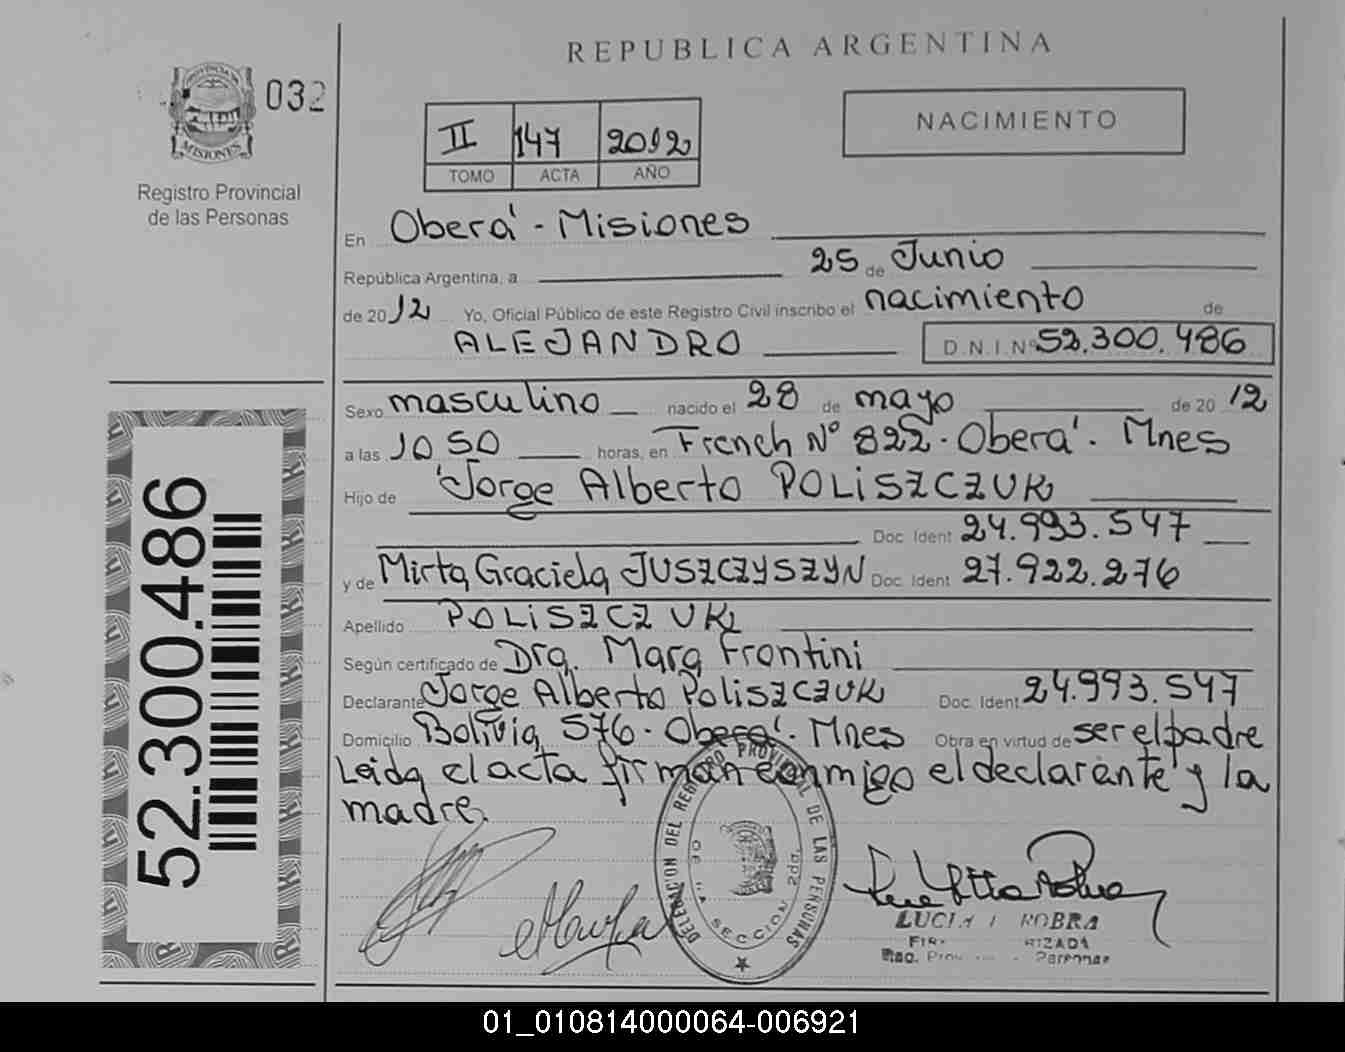 REPUBLICA ARGENTINA
PROVINCIA DE
MISIONES
032
Registro Provincial
de las Personas
II 147 2012
TOMO ACTA AÑO
NACIMIENTO
En Oberá - Misiones
República Argentina, a 25 de Junio
de 2012 Yo, Oficial Público de este Registro Civil inscribo el nacimiento de
ALEJANDRO D.N.I. Nº 52.300.486
Sexo masculino nacido el 28 de mayo de 2012
a las 10 50 horas, en French Nº 822 - Oberá. Mnes
Hijo de Jorge Alberto POLISZCZUK
Doc. Ident 24.993.547
y de Mirta Graciela JUSZCZYSZYN Doc. Ident 27.922.276
Apellido POLISZCZUK
Según certificado de Dra. Mara Frontini
Declarante Jorge Alberto POLISZCZUK Doc. Ident 24.993.547
Domicilio Bolivia 576 - Oberá. Mnes Obra en virtud de ser el padre
Leida el acta firman conmigo el declarante y la
madre.
52.300.486
DELEGACION DEL REGISTRO PROVINCIAL DE LAS PERSONAS
SECCION 2da.
LUCIA ROBRA
Personas
01_010814000064-006921